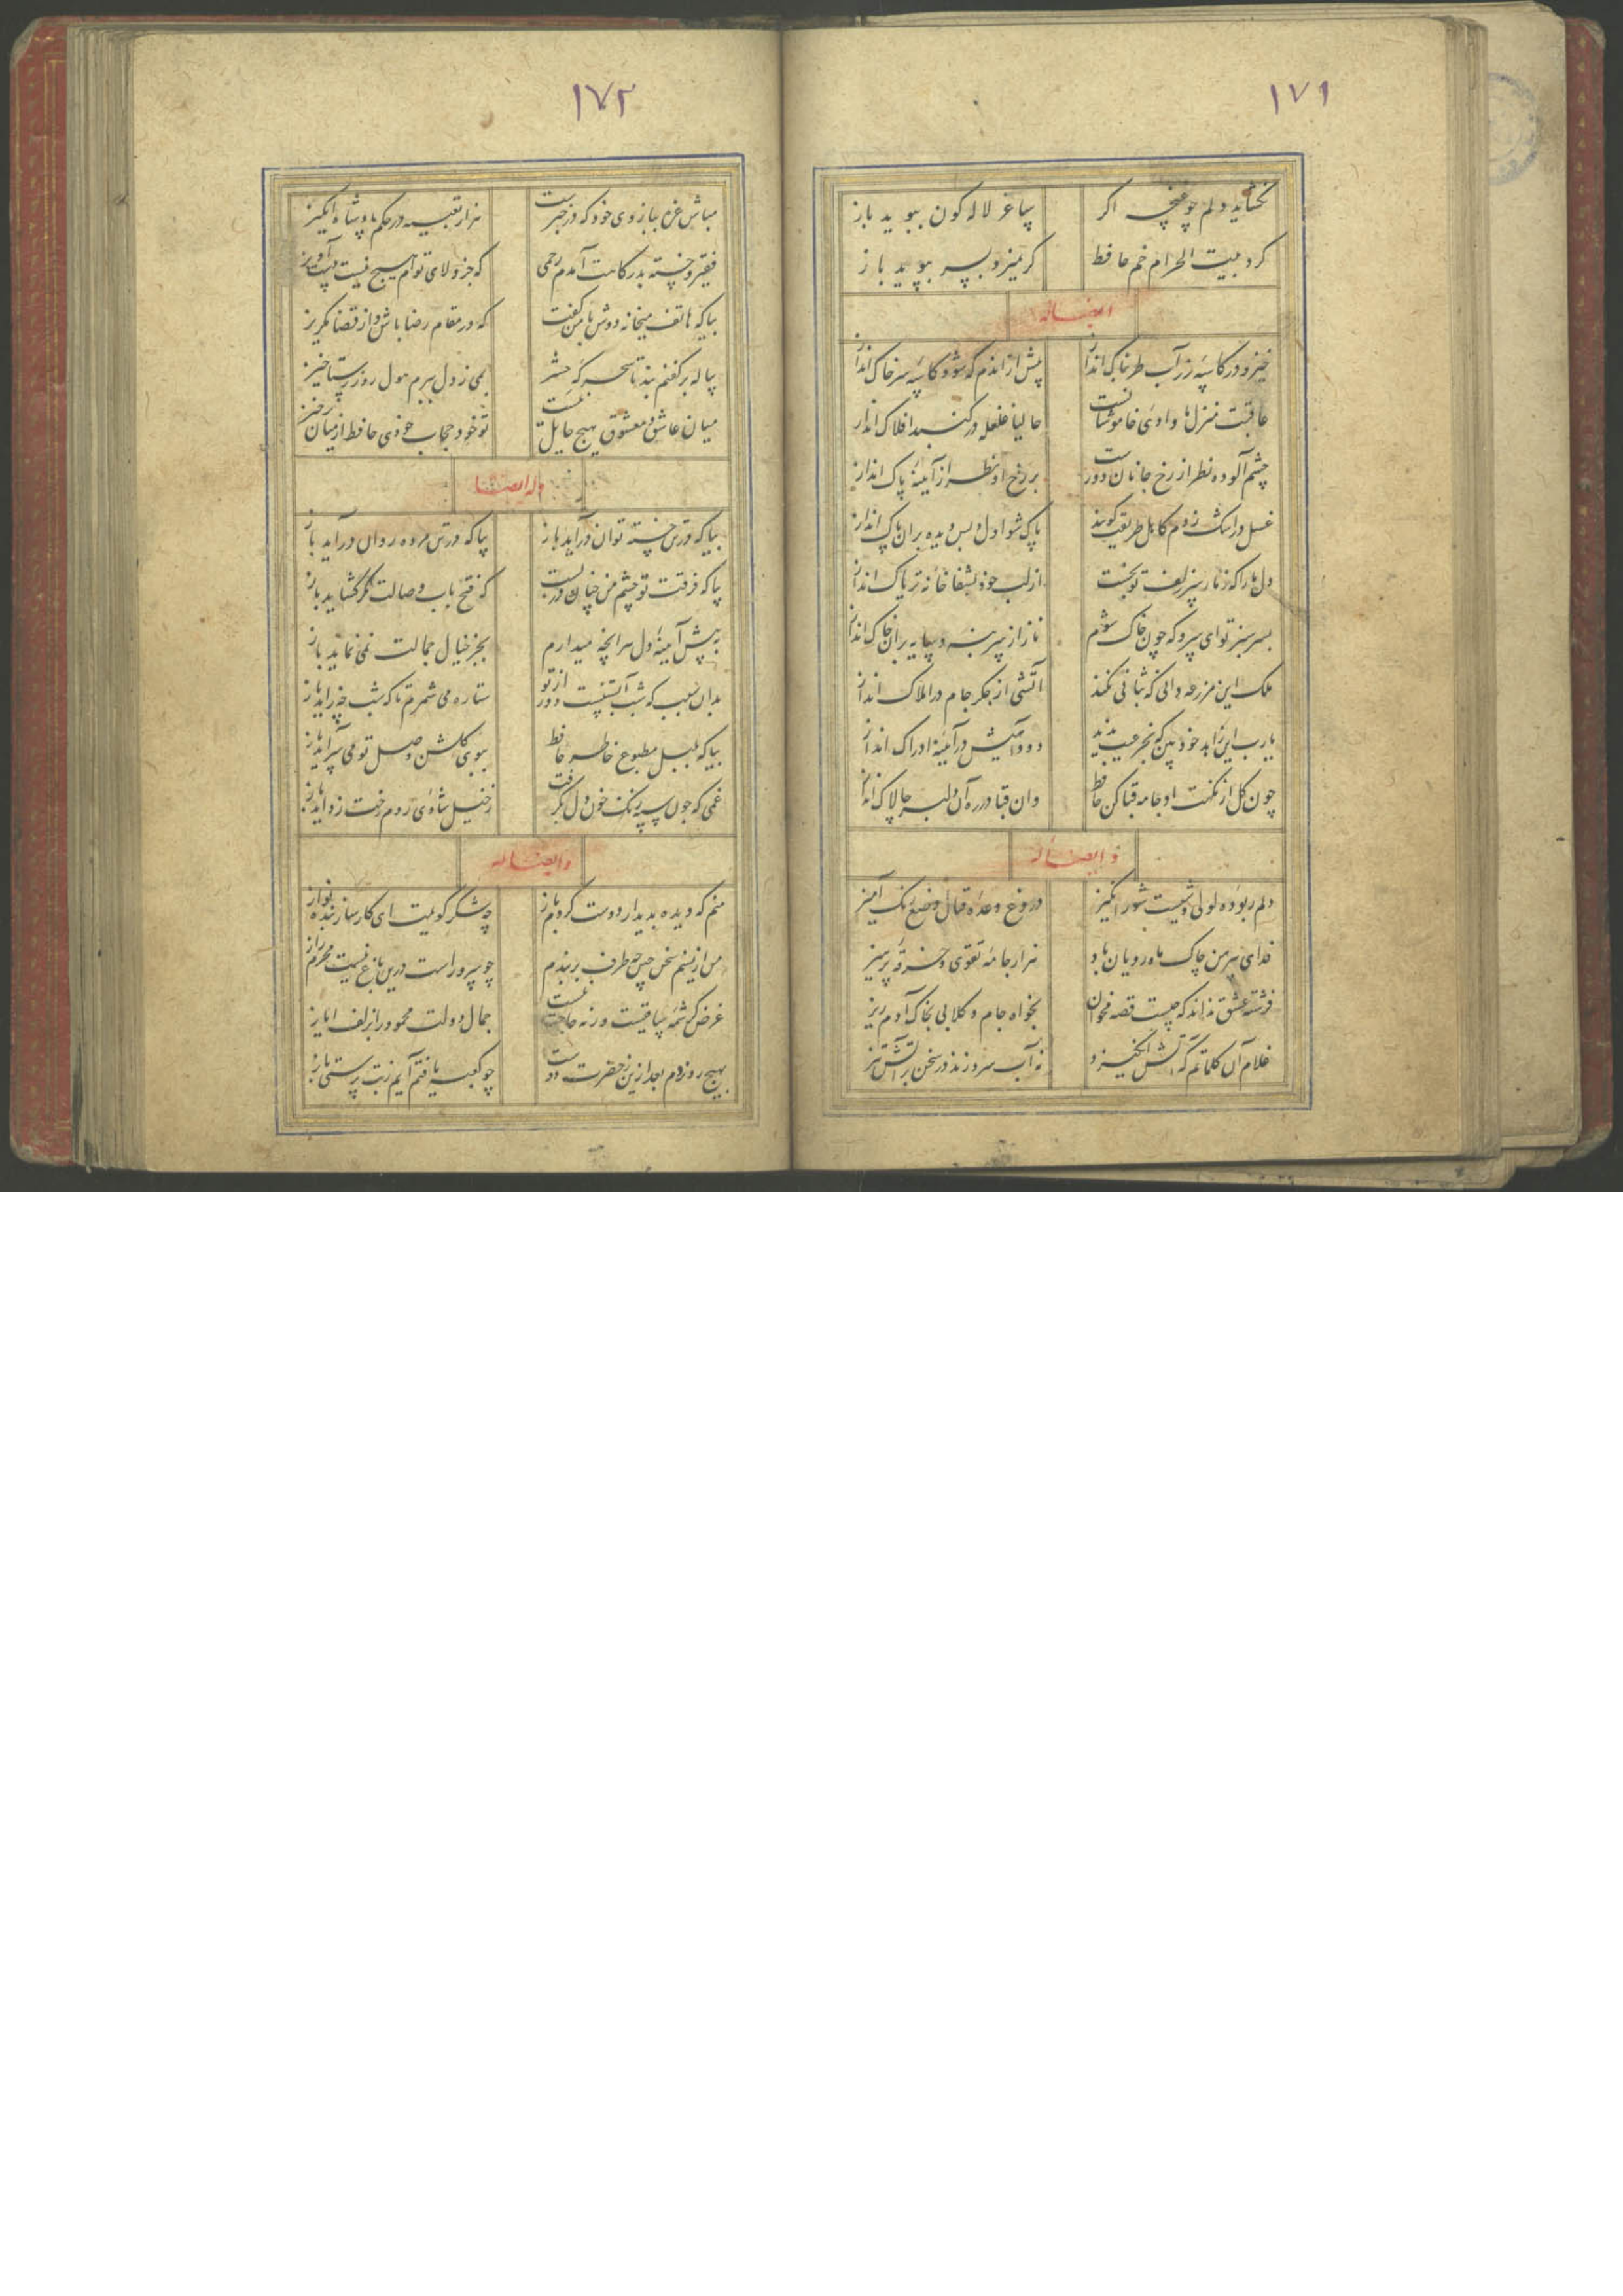 ۱۷۱
نکشاید دلم چو غنچه اگر
بساغر لاله کون ببوید باز
کرد بیت الحرام خم حافظ
کر نمیرد بسر بپوید باز
ایضاله
خیز و در کاسه زر آب طربناک انداز
پیش از اندم که شود کاسه سر خاک انداز
عاقبت منزل ما وادی خاموشانست
حالیا غلغله در کنبد افلاک انداز
چشم آلوده نظر از رخ جانان دورست
بر رخ او نظر از آینه پاک انداز
غسل در اشک زدم کاهل طریقت کویند
پاک شو اول و پس دیده بران پاک انداز
دل ما را که ز مار سر زلف تو بخست
از لب خود بشفاخانه تریاک انداز
بسر سبز تو ای سرو که چون خاک شوم
ناز از سر بنه و سایه بران خاک انداز
ملک این مزرعه دانی که ثباتی نکند
آتشی از جکر جام در املاک انداز
یارب این زاهد خودبین که بجز عیب ندید
دود آهیش در آینه ادراک انداز
چون کل از نکهت او جامه قبا کن حافظ
وان قبا در ره آن دلبر چالاک انداز
و ایضاله
دلم ربوده لولی وشیست شورانکیز
دروغ وعده قتال وضع رنک آمیز
فدای پیرهن چاک ماه رویان باد
هزار جامه تقوی و خرقه پرهیز
فرشته عشق نداند که چیست قصه مخوان
بخواه جام و کلابی بخاک آدم ریز
غلام آن کلماتم که آتش انکیزد
نه آب سرد زند در سخن بر آتش تیز
۱۷۲
مباش غره ببازوی خود که در خبرست
هزار تعبیه در حکم پادشاه انکیز
فقیر و خسته بدرکاهت آمدم رحمی
که جز ولای توام هیچ نیست دست آویز
بیا که هاتف میخانه دوش با من کفت
که در مقام رضا باش و از قضا مکریز
پیاله بر کفنم بند تا سحرکه حشر
بمی ز دل ببرم هول روز رستاخیز
میان عاشق و معشوق هیچ حایل نیست
تو خود حجاب خودی حافظ از میان برخیز
وله ایضا
بیا که در تن خسته توان درآید باز
بیا که در تن مرده روان درآید باز
بیا که فرقت تو چشم من چنان در بست
که فتح باب وصالت مکر کشاید باز
به پیش آینه دل هر انچه میدارم
بجز خیال جمالت نمی نماید باز
بدان سبب که شب آبستنست دور از تو
ستاره می شمرم تا که شب چه زاید باز
بیا که بلبل مطبوع خاطر حافظ
ببوی کلشن وصل تو می سراید باز
غمی که چون سپه زنک خون دل بکرفت
ز خیل شادی روم رخت زداید باز
و ایضاله
منم که دیده بدیدار دوست کردم باز
چه شکر کویمت ای کارساز بنده نواز
من از نسیم سخن چین چه طرف بربندم
چو سرو راست درین باغ نیست محرم راز
غرض کرشمه ساقیست ورنه حاجت نیست
جمال دولت محمود را زلف ایاز
بهیچ رو نروم بعد ازین ز حضرت دوست
چو کعبه یافتم آیم ز بت پرستی باز